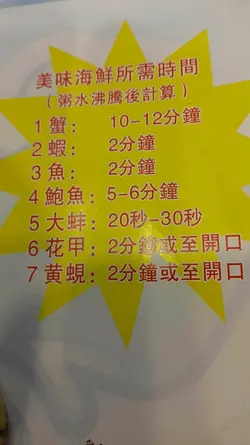 美味海鮮所需時間
(粥水沸騰後計算)
1 蟹: 10-12分鐘
2 蝦: 2分鐘
3 魚: 2分鐘
4 鮑魚: 5-6分鐘
5 大蚌: 20秒-30秒
6 花甲: 2分鐘或至開口
7 黄蜆: 2分鐘或至開口